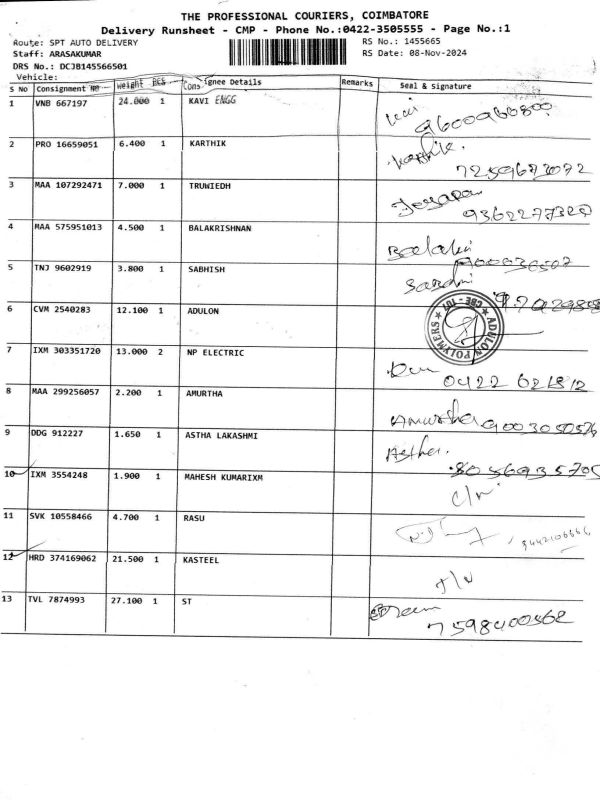 THE PROFESSIONAL COURIERS, COIMBATORE
Delivery Runsheet - CMP - Phone No.:0422-3505555 - Page No.:1
Route: SPT AUTO DELIVERY RS No.: 1455665
Staff: ARASAKUMAR RS Date: 08-Nov-2024
DRS No.: DCJB145566501
Vehicle:
S No Consignment No Weight PCS Consignee Details Remarks Seal & Signature
1 VNB 667197 24.000 1 KAVI ENGG
2 PRO 16659051 6.400 1 KARTHIK Karthik.
7259673072
3 MAA 107292471 7.000 1 TRUWIEDH
9362277320
4 MAA 575951013 4.500 1 BALAKRISHNAN
5 TNJ 9602919 3.800 1 SABHISH
6 CVM 2540283 12.100 1 ADULON ADULON POLYMERS * CBE - 107 *
7 IXM 303351720 13.000 2 NP ELECTRIC
0422 621812
8 MAA 299256057 2.200 1 AMURTHA Amurtha 9003050576
9 DDG 912227 1.650 1 ASTHA LAKASHMI Asthar.
8056935705
10 IXM 3554248 1.900 1 MAHESH KUMARIXM
11 SVK 10558466 4.700 1 RASU
12 HRD 374169062 21.500 1 KASTEEL
13 TVL 7874993 27.100 1 ST
7598400562